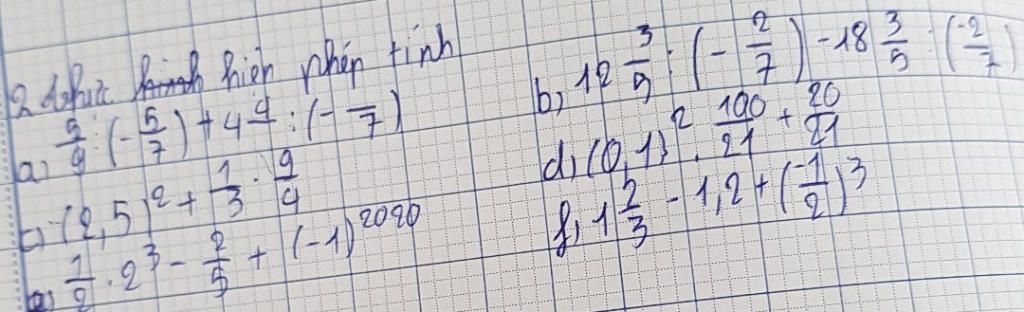 2. Thực hiện phép tính
a) 5/9 : (-5/7) + 4 4/ : (- /7)
b) 12 3/5 : (-2/7) - 18 3/5 : (-2/7)
c) (2,5)² + 1/3 . 9/4
d) (0,1)² . 100/21 + 20/21
e) 1/2 . 2³ - 2/5 + (-1)²⁰²⁰
f) 1 2/3 - 1,2 + (-1/2)³